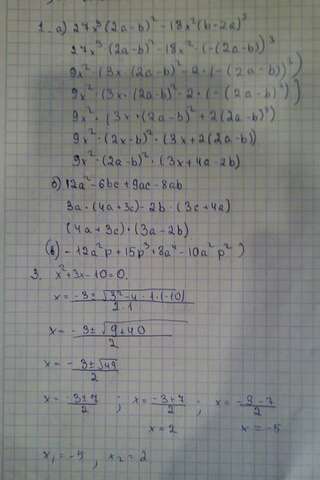 1. а) 27x³(2a-b)² - 18x²(b-2a)³
27x³(2a-b)² - 18x²·(-(2a-b))³
9x²·(3x·(2a-b)²-2·(-(2a-b))³)
9x²·(3x·(2a-b)²-2·(-(2a-b)³))
9x²·(3x·(2a-b)²+2(2a-b)³)
9x²·(2x-b)²·(3x+2(2a-b))
9x²·(2a-b)²·(3x+4a-2b)
б) 12a²-6bc+9ac-8ab
3a·(4a+3c)-2b·(3c+4a)
(4a+3c)·(3a-2b)
(в) -12a²p+15p³+8a⁴-10a²p²)
3. x²+3x-10=0.
x=-3±√3²-4·1·(-10)/2·1
x=-3±√9+40/2
x=-3±√49/2
x=-3±7/2; x=-3+7/2; x=-3-7/2
x=2 x=-5
x₁=-5, x₂=2